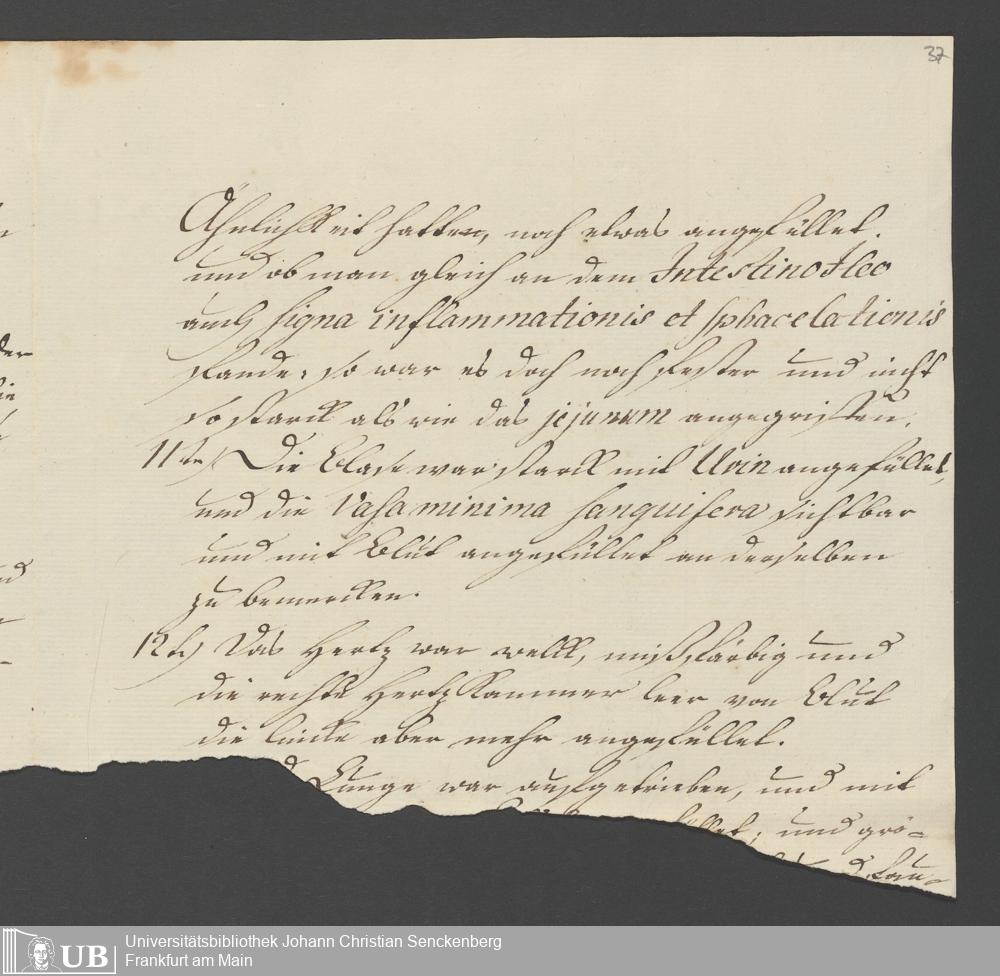 37
Ähnlichkeit hatten, noch etwas angefüllet.
und ob man gleich an dem Intestino Ileo
auch signa inflammationis et sphacelationis
fande, so war es doch noch fester und nicht
so starck als wie das jejunum angegriffen.
11te) Die Blase war starck mit Urin angefüllet,
und die Vasa minima sanguifera sichtbar
und mit Blut angefüllet an derselben
zu bemercken.
12te) Das Hertz war welck, mißfärbig und
die rechte Hertzkammer leer von Blut
die lincke aber mehr angefüllet.
Lunge war aufgetrieben, und mit
und grö-
der
UB
Universitätsbibliothek Johann Christian Senckenberg
Frankfurt am Main